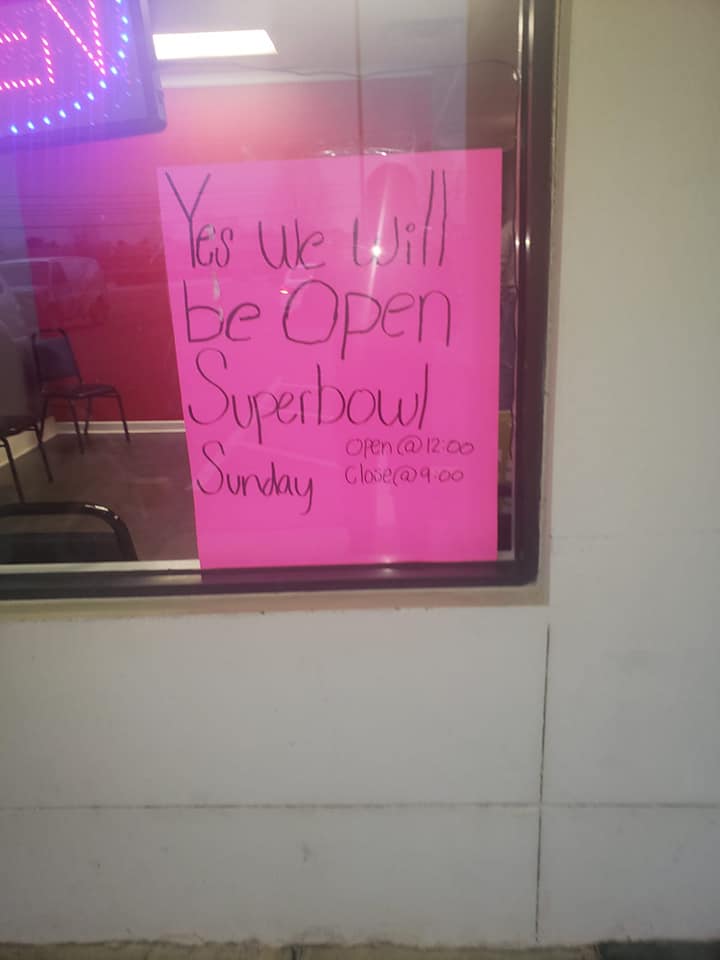 EN
Yes We Will
be Open
Superbowl
Sunday
Open@12:00
Close@9:00